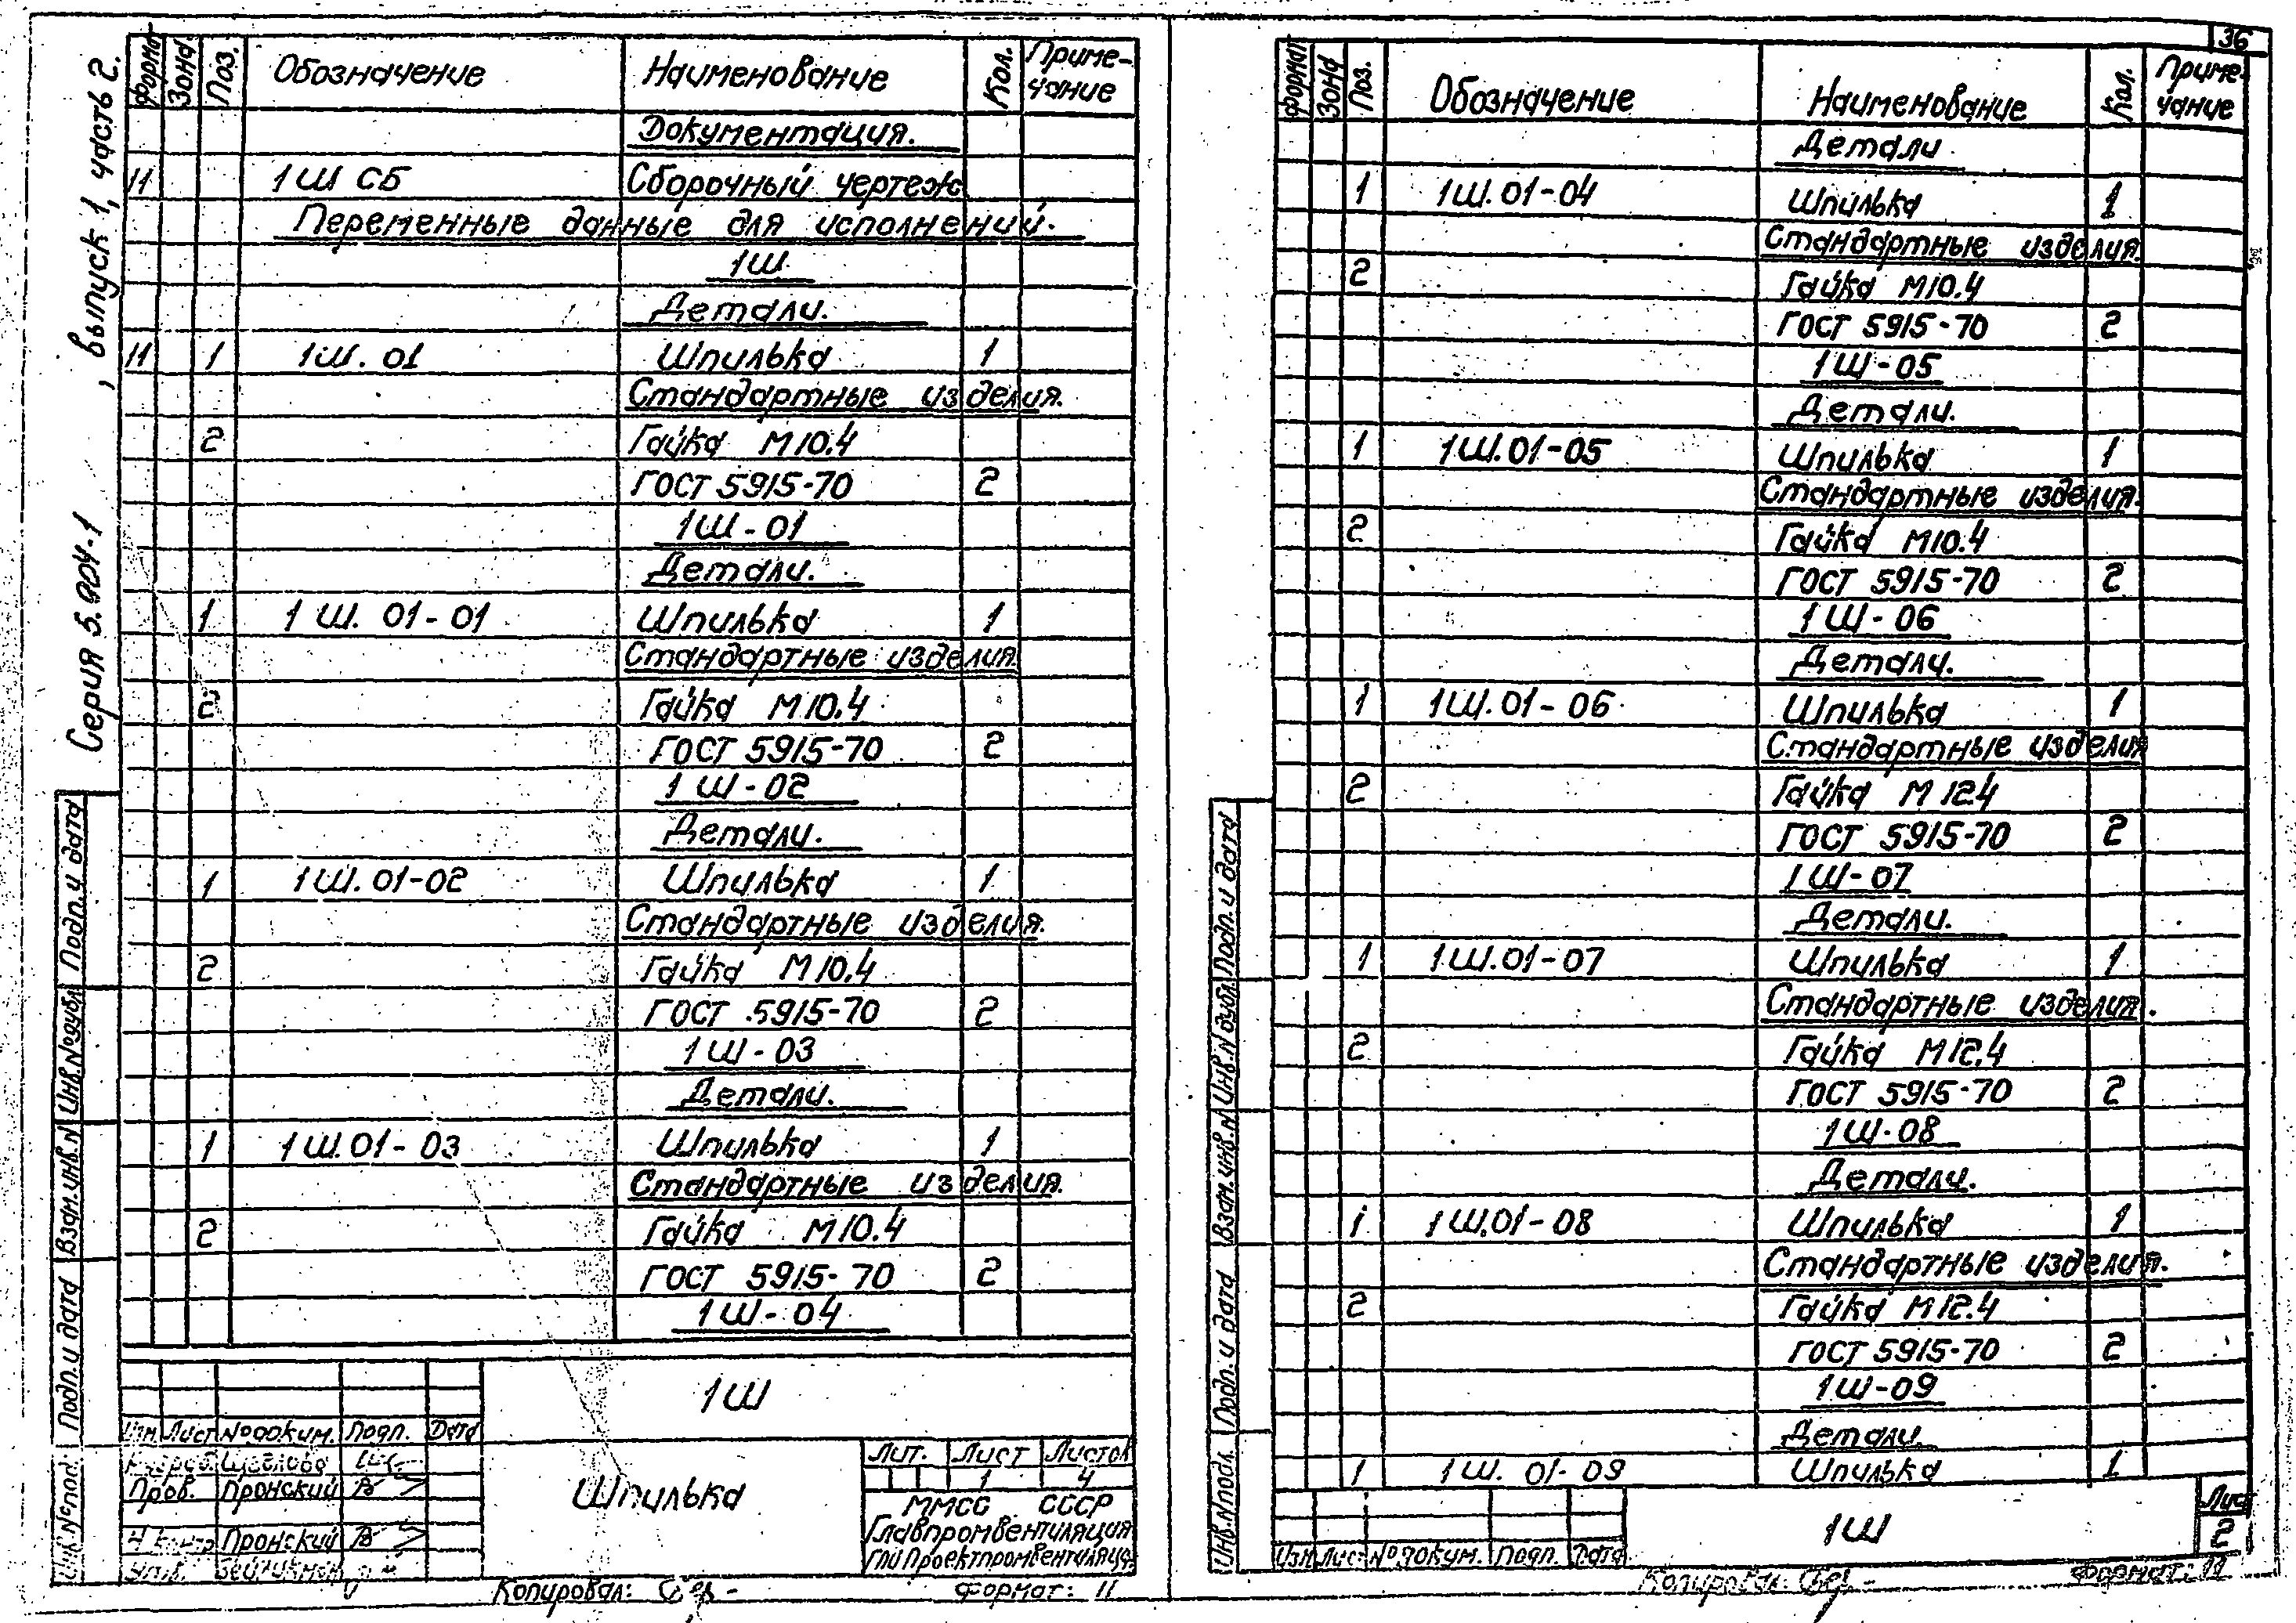 Серия 5.904-1 , выпуск 1, часть 2.
Формат Зона Поз. Обозначение Наименование Кол. Приме-
чание
Документация.
11 1Ш СБ Сборочный чертеж
Переменные данные для исполнений.
1Ш
Детали.
11 1 1Ш. 01 Шпилька 1
Стандартные изделия.
2 Гайка М10.4
ГОСТ 5915-70 2
1Ш-01
Детали.
1 1Ш. 01-01 Шпилька 1
Стандартные изделия.
2 Гайка М10.4
ГОСТ 5915-70 2
1Ш-02
Детали.
1 1Ш. 01-02 Шпилька 1
Стандартные изделия.
2 Гайка М10.4
ГОСТ 5915-70 2
1Ш-03
Детали.
1 1Ш.01-03 Шпилька 1
Стандартные изделия.
2 Гайка М10.4
ГОСТ 5915-70 2
1Ш-04
Подп. и дата
Инв.№ дубл.
Взам.инв.N
Подп. и дата
Инв.№ подл.
1Ш
Изм. Лист № докум. Подп. Дата
Разраб. Щеглова
Пров. Пронский
Н.контр. Пронский
Утв.
Шпилька
Лит. Лист Листов
1 4
ММСС СССР
Главпромвентиляция
ГПИ Проектпромвентиляция
Копировал:
Формат: 11
36
Формат Зона Поз. Обозначение Наименование Кол. Приме-
чание
Детали
1 1Ш.01-04 Шпилька 1
Стандартные изделия.
2 Гайка М10.4
ГОСТ 5915-70 2
1Ш-05
Детали.
1 1Ш.01-05 Шпилька 1
Стандартные изделия.
2 Гайка М10.4
ГОСТ 5915-70 2
1Ш-06
Детали.
1 1Ш.01-06 Шпилька 1
Стандартные изделия
2 Гайка М 12.4
ГОСТ 5915-70 2
1Ш-07
Детали.
1 1Ш.01-07 Шпилька 1
Стандартные изделия.
2 Гайка М12.4
ГОСТ 5915-70 2
1Ш-08
Детали.
1 1Ш.01-08 Шпилька 1
Стандартные изделия.
2 Гайка М12.4
ГОСТ 5915-70 2
1Ш-09
Детали.
1 1Ш. 01-09 Шпилька 1
Подп. и дата
Инв.N дубл.
Взам.инв.N
Подп. и дата
Инв.N подл.
Изм. Лист № докум. Подп. Дата
1Ш
Лист
2
Копировал:
Формат: 11